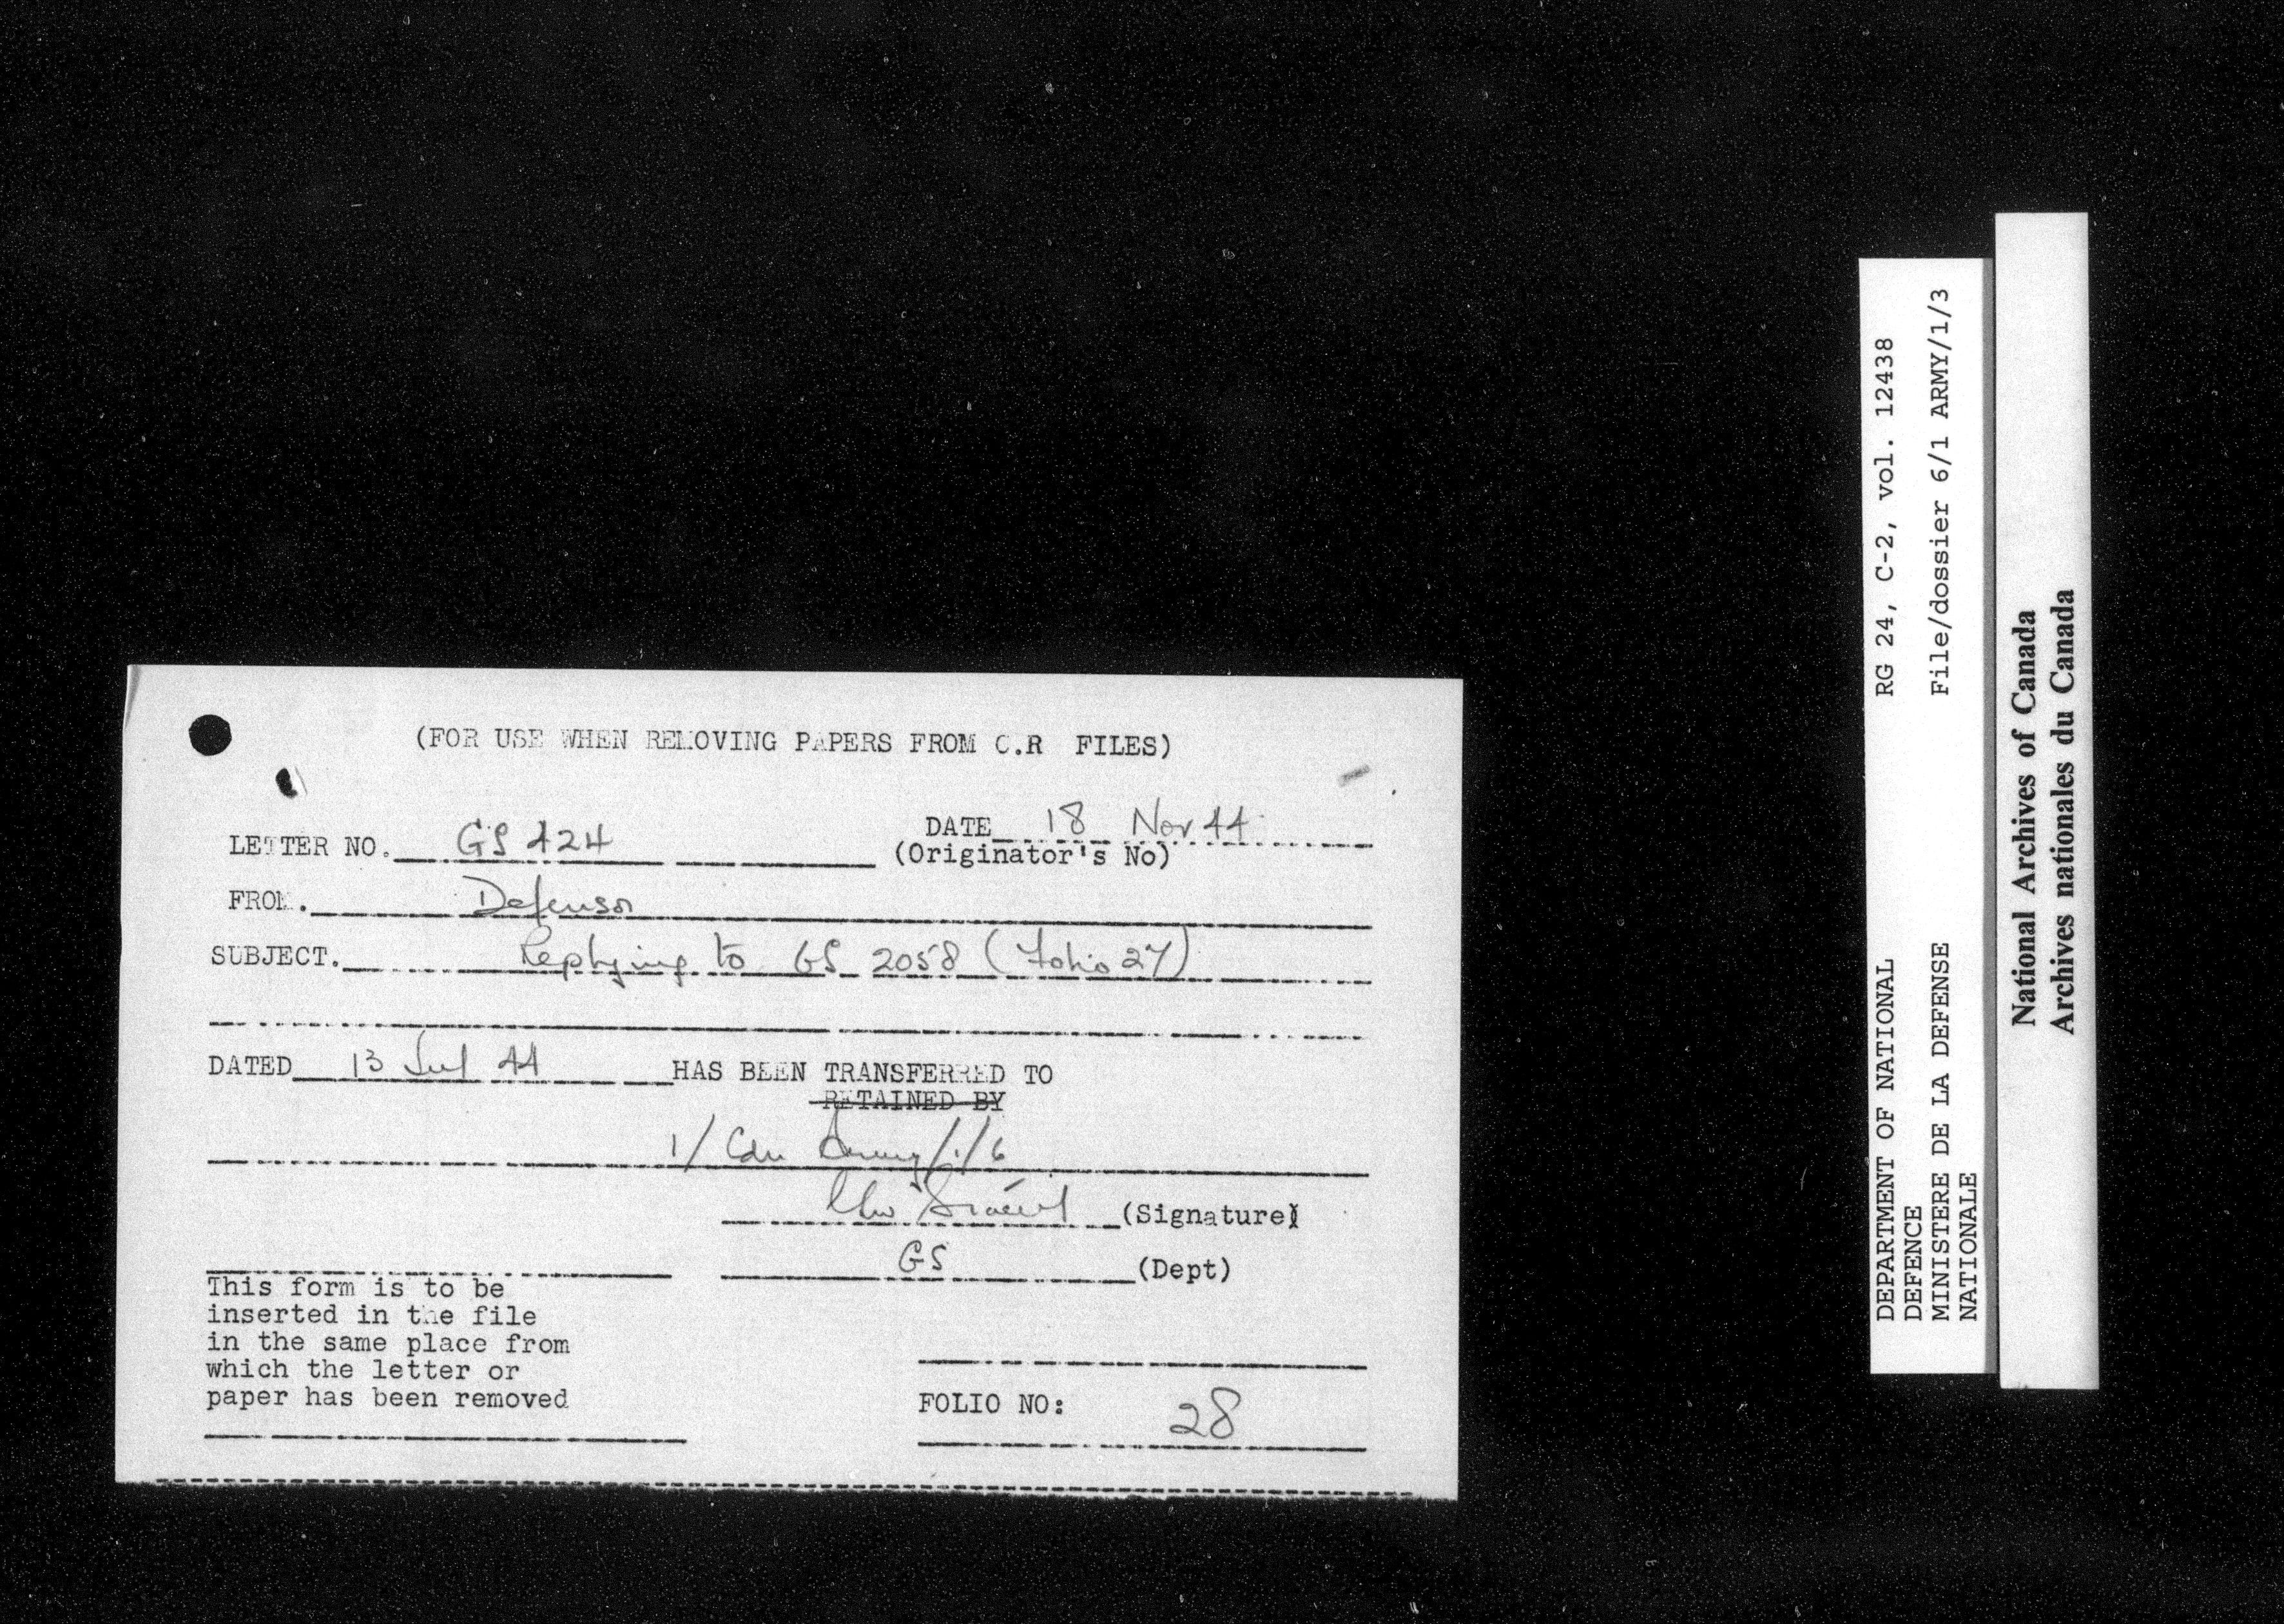 (FOR USE WHEN REMOVING PAPERS FROM C.R FILES)
LETTER NO. GS 424 DATE 18 Nov 44
(Originator's No)
FROM. Defensor
SUBJECT. Replying to GS 2058 (Folio 27)
DATED 13 Jul 44 HAS BEEN TRANSFERRED TO
RETAINED BY
1/ Cdn Army/1/6
(Signature)
GS (Dept)
This form is to be
inserted in the file
in the same place from
which the letter or
paper has been removed
FOLIO NO: 28
DEPARTMENT OF NATIONAL
DEFENCE
MINISTERE DE LA DEFENSE
NATIONALE
RG 24, C-2, vol. 12438
File/dossier 6/1 ARMY/1/3
National Archives of Canada
Archives nationales du Canada